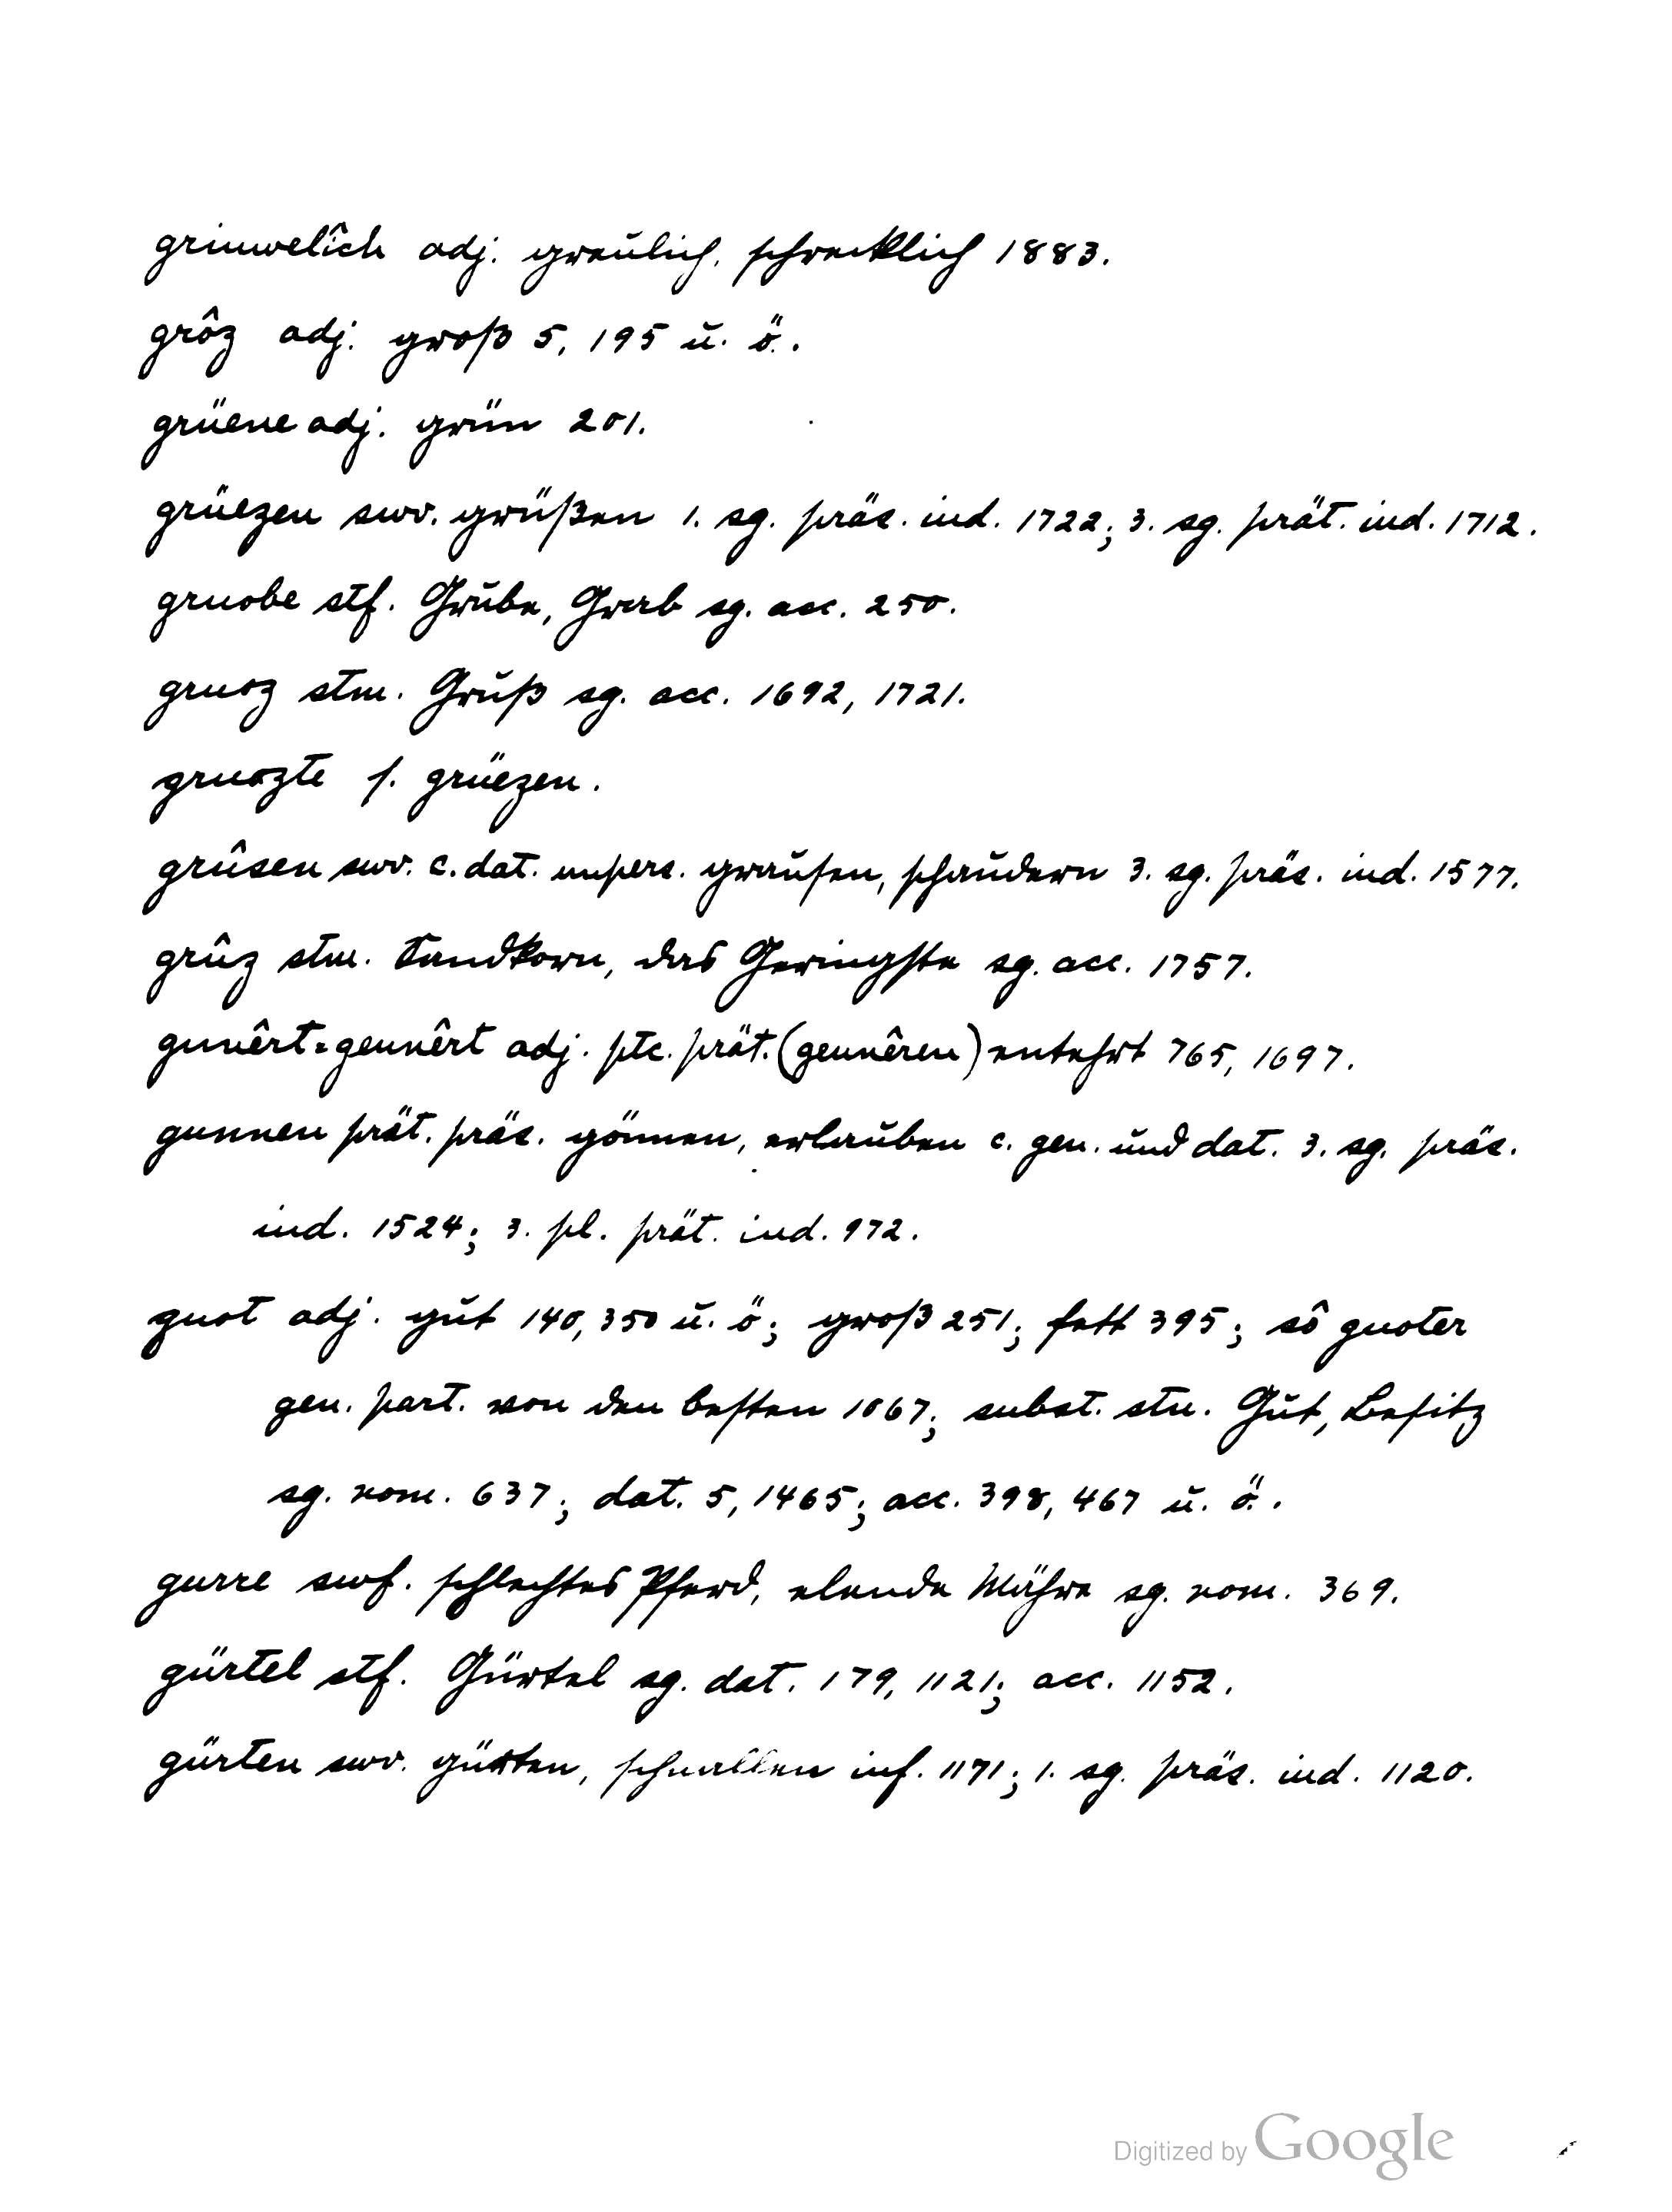 griuwelîch adj. greulich, schrecklich 1883.
grôz adj. groß 5, 195 u. ö.
grüene adj. grün 201.
grüezen swv. grüßen 1. sg. präs. ind. 1722; 3. sg. prät. ind. 1712.
gruobe stf. Grube, Grab sg. acc. 250.
gruoz stm. Gruß sg. acc. 1692, 1721.
gruozte s. grüezen.
grûsen swv. c. dat. unpers. grausen, schaudern 3. sg. präs. ind. 1577.
grûz stm. Sandkorn, das Geringste sg. acc. 1757.
gunêrt=geunêrt adj. ptc. prät. (geunêren) entehrt 765, 1697.
gunnen prät. präs. gönnen, erlauben c. gen. und dat. 3. sg. präs.
ind. 1524; 3. pl. prät. ind. 972.
guot adj. gut 140, 350 u. ö; groß 251; fett 395; sô guoter
gen. part. von den besten 1067; subst. stn. Gut, Besitz
sg. nom. 637; dat. 5, 1465; acc. 398, 467 u. ö.
gurre swf. schlechtes Pferd, elende Mähre sg. nom. 369.
gürtel stf. Gürtel sg. dat. 179, 1121; acc. 1152.
gürten swv. gürten, schnallen inf. 1171; 1. sg. präs. ind. 1120.
Digitized by Google